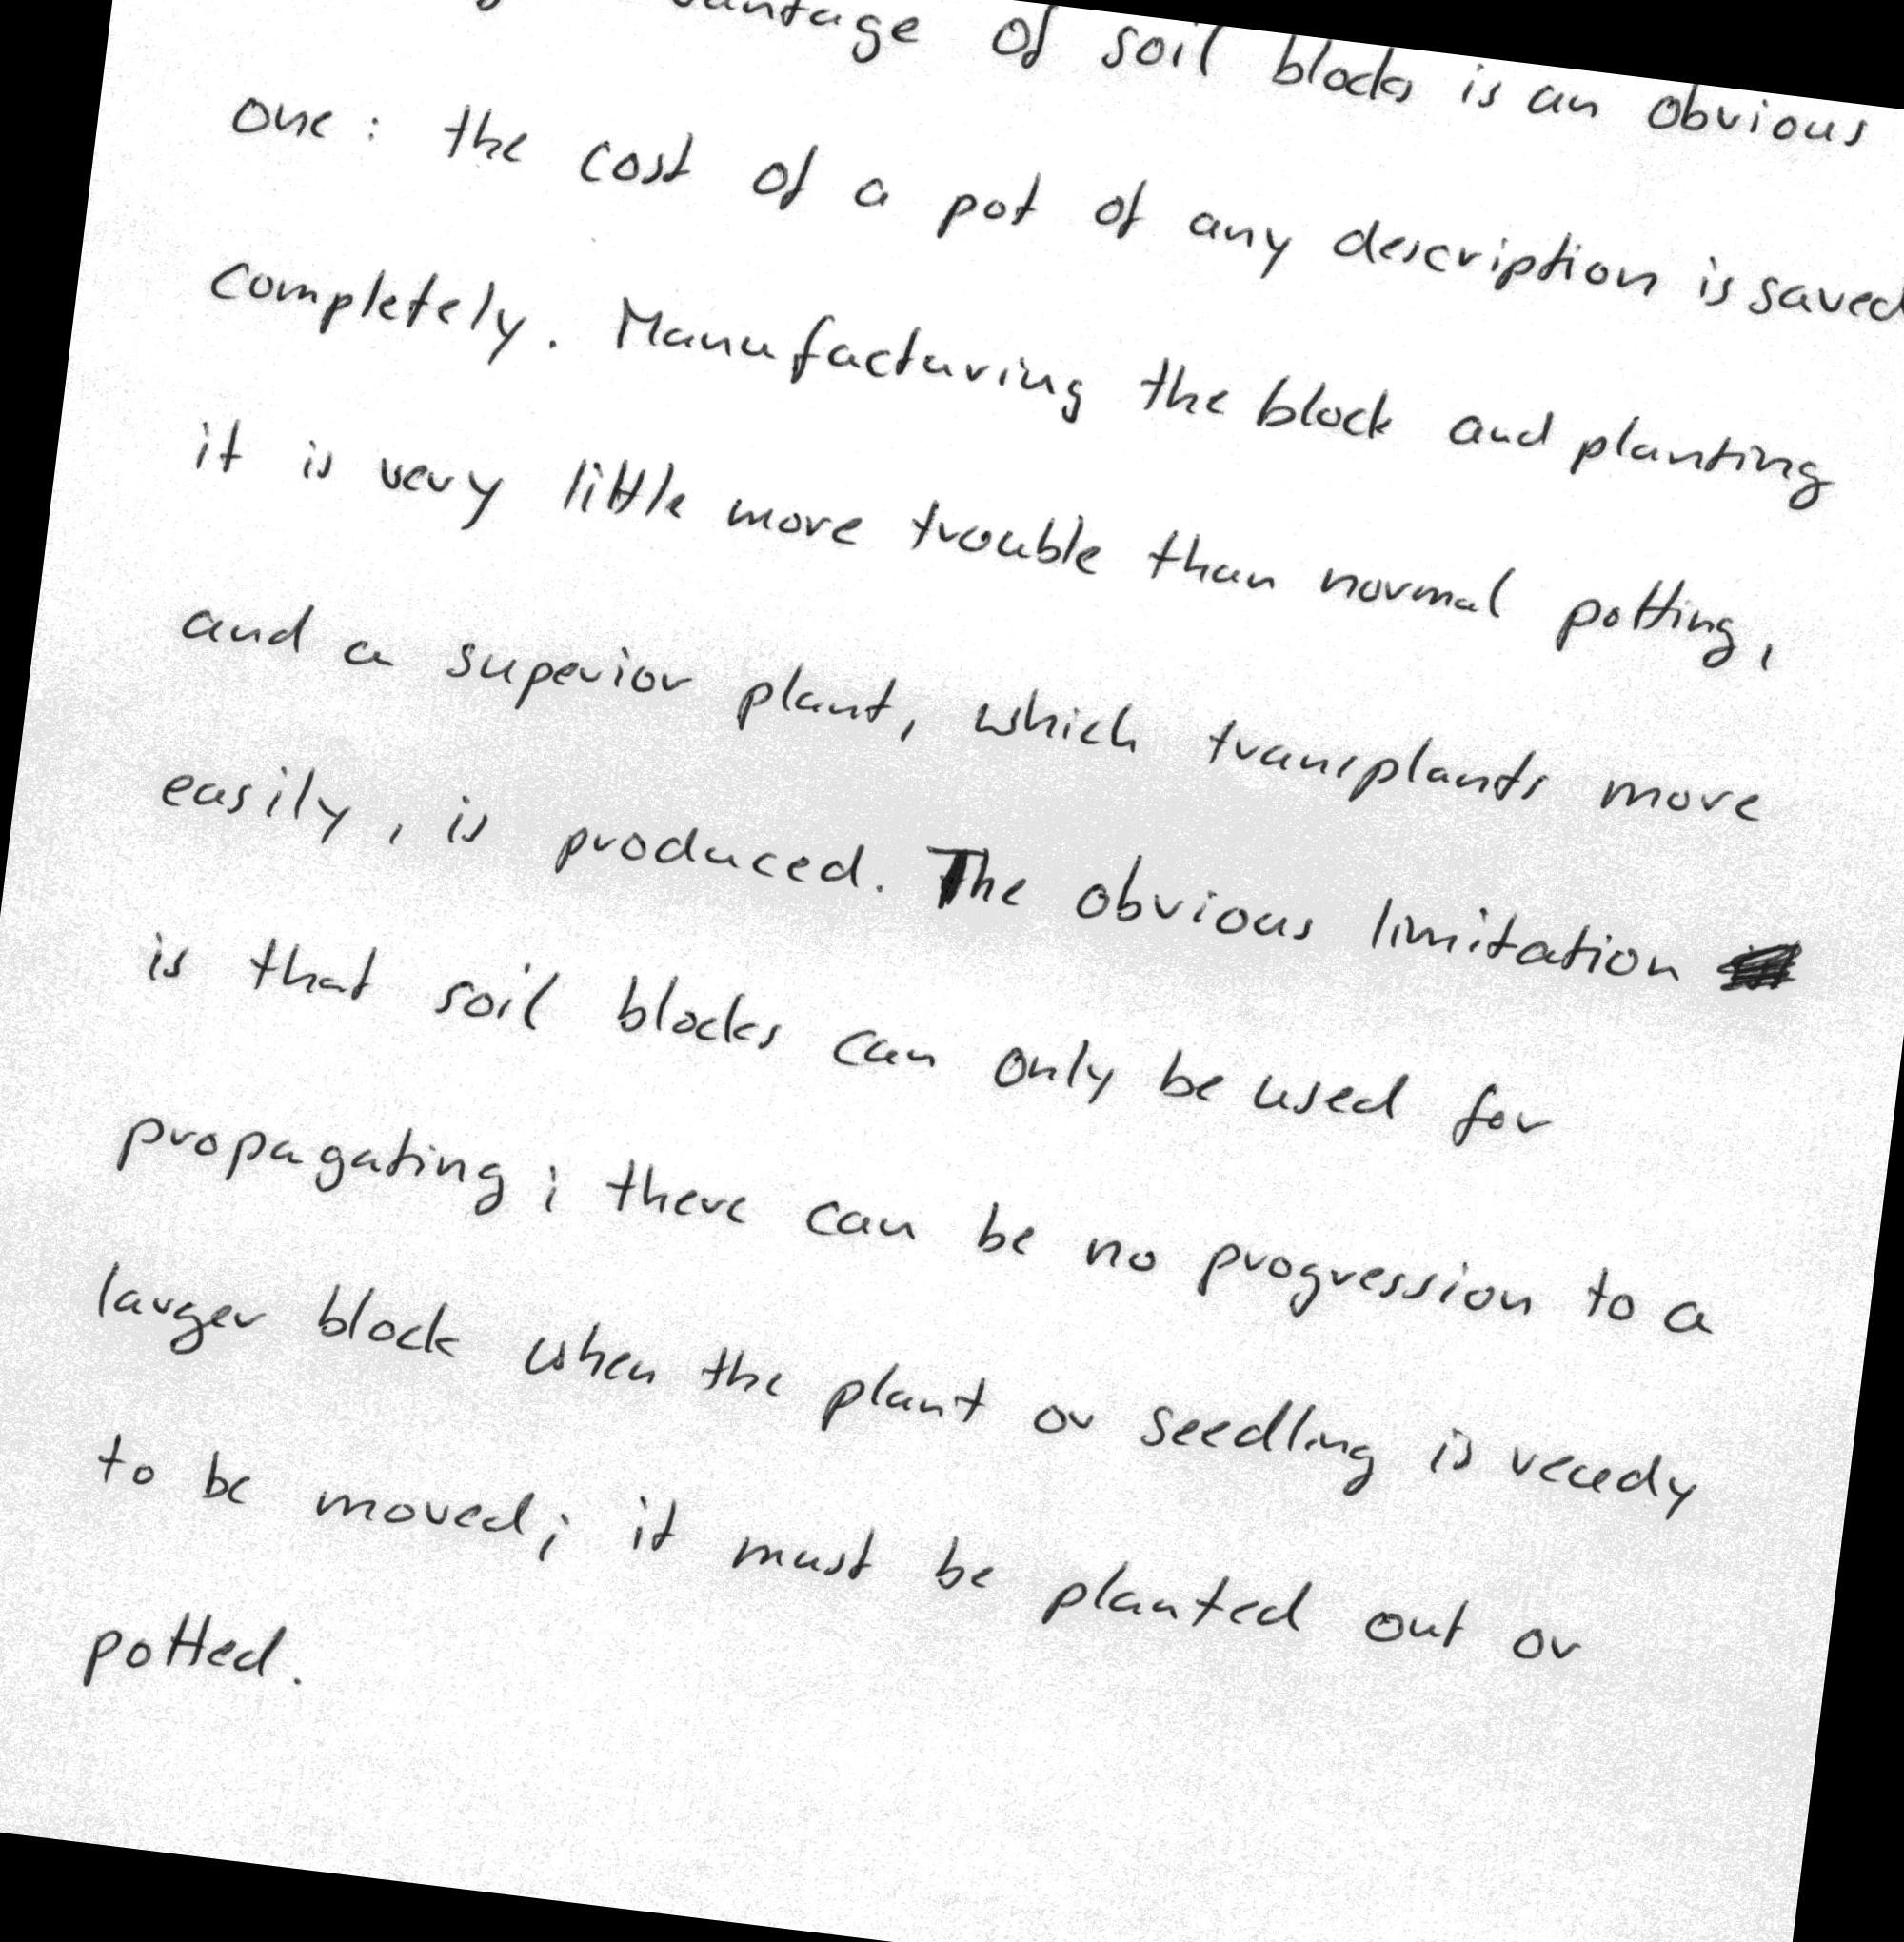 of soil blocks is an obvious
one: the cost of a pot of any description is saved
completely. Manufacturing the block and planting
it is very little more trouble than normal potting,
and a superior plant, which transplants more
easily, is produced. The obvious limitation
is that soil blocks can only be used for
propagating; there can be no progression to a
larger block when the plant or seedling is ready
to be moved; it must be planted out or
potted.